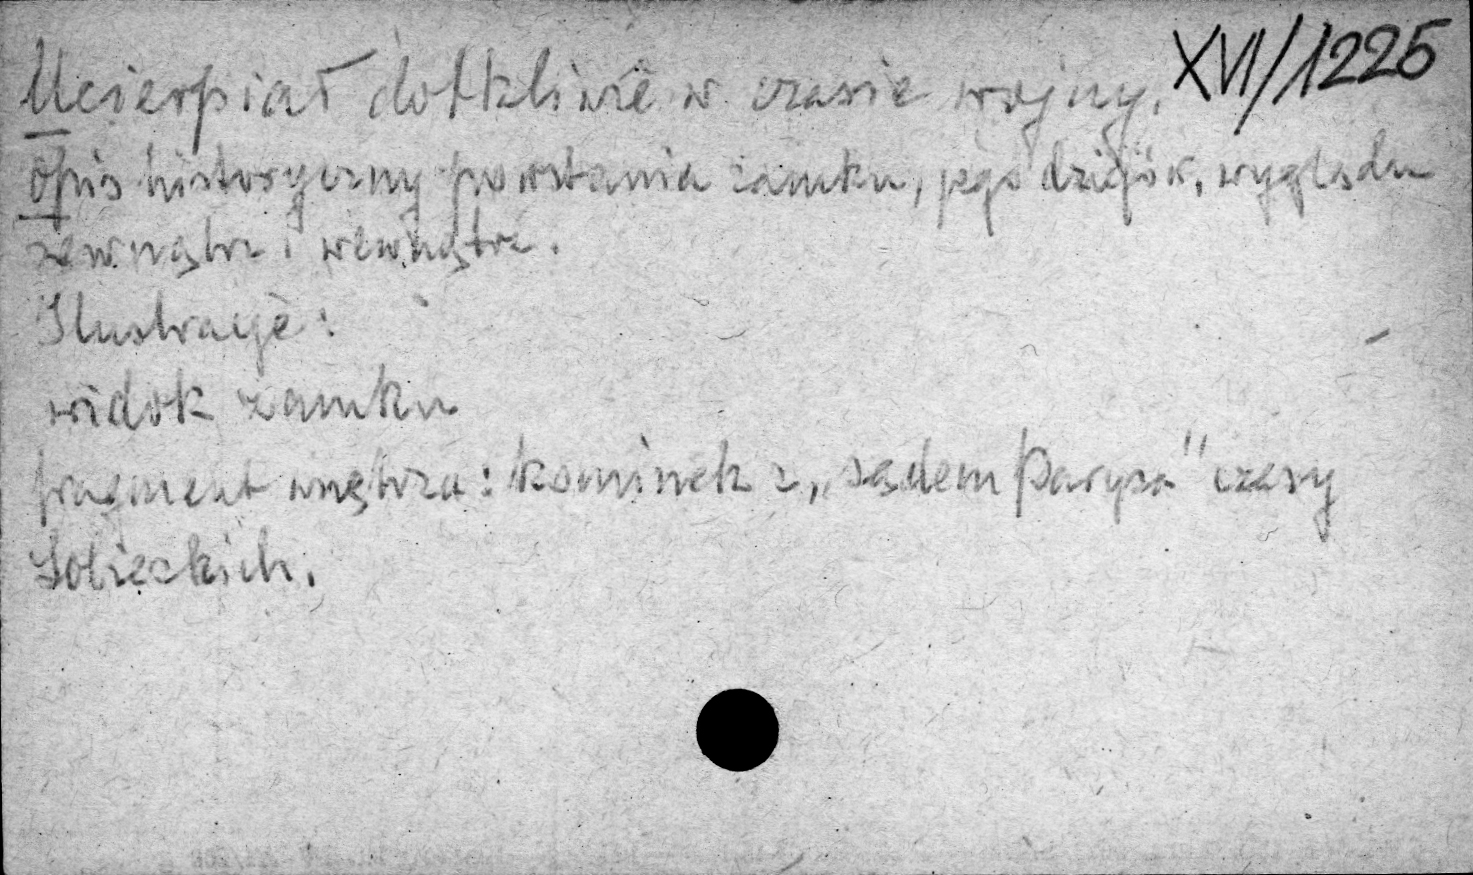 XVI/1225
Ucierpiał dotkliwie w czasie wojny.
opis historyczny powstania zamku, jego dziejów, wyglądu
zewnątrz i wewnątrz.
Ilustracje:
widok zamku
fragment wnętrza: kominek z „sądem Parysa" czasy
Sobieskich.